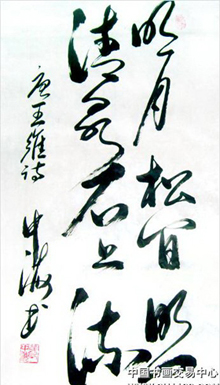 明月松间照
清泉石上流
唐王维诗
中国书画交易中心